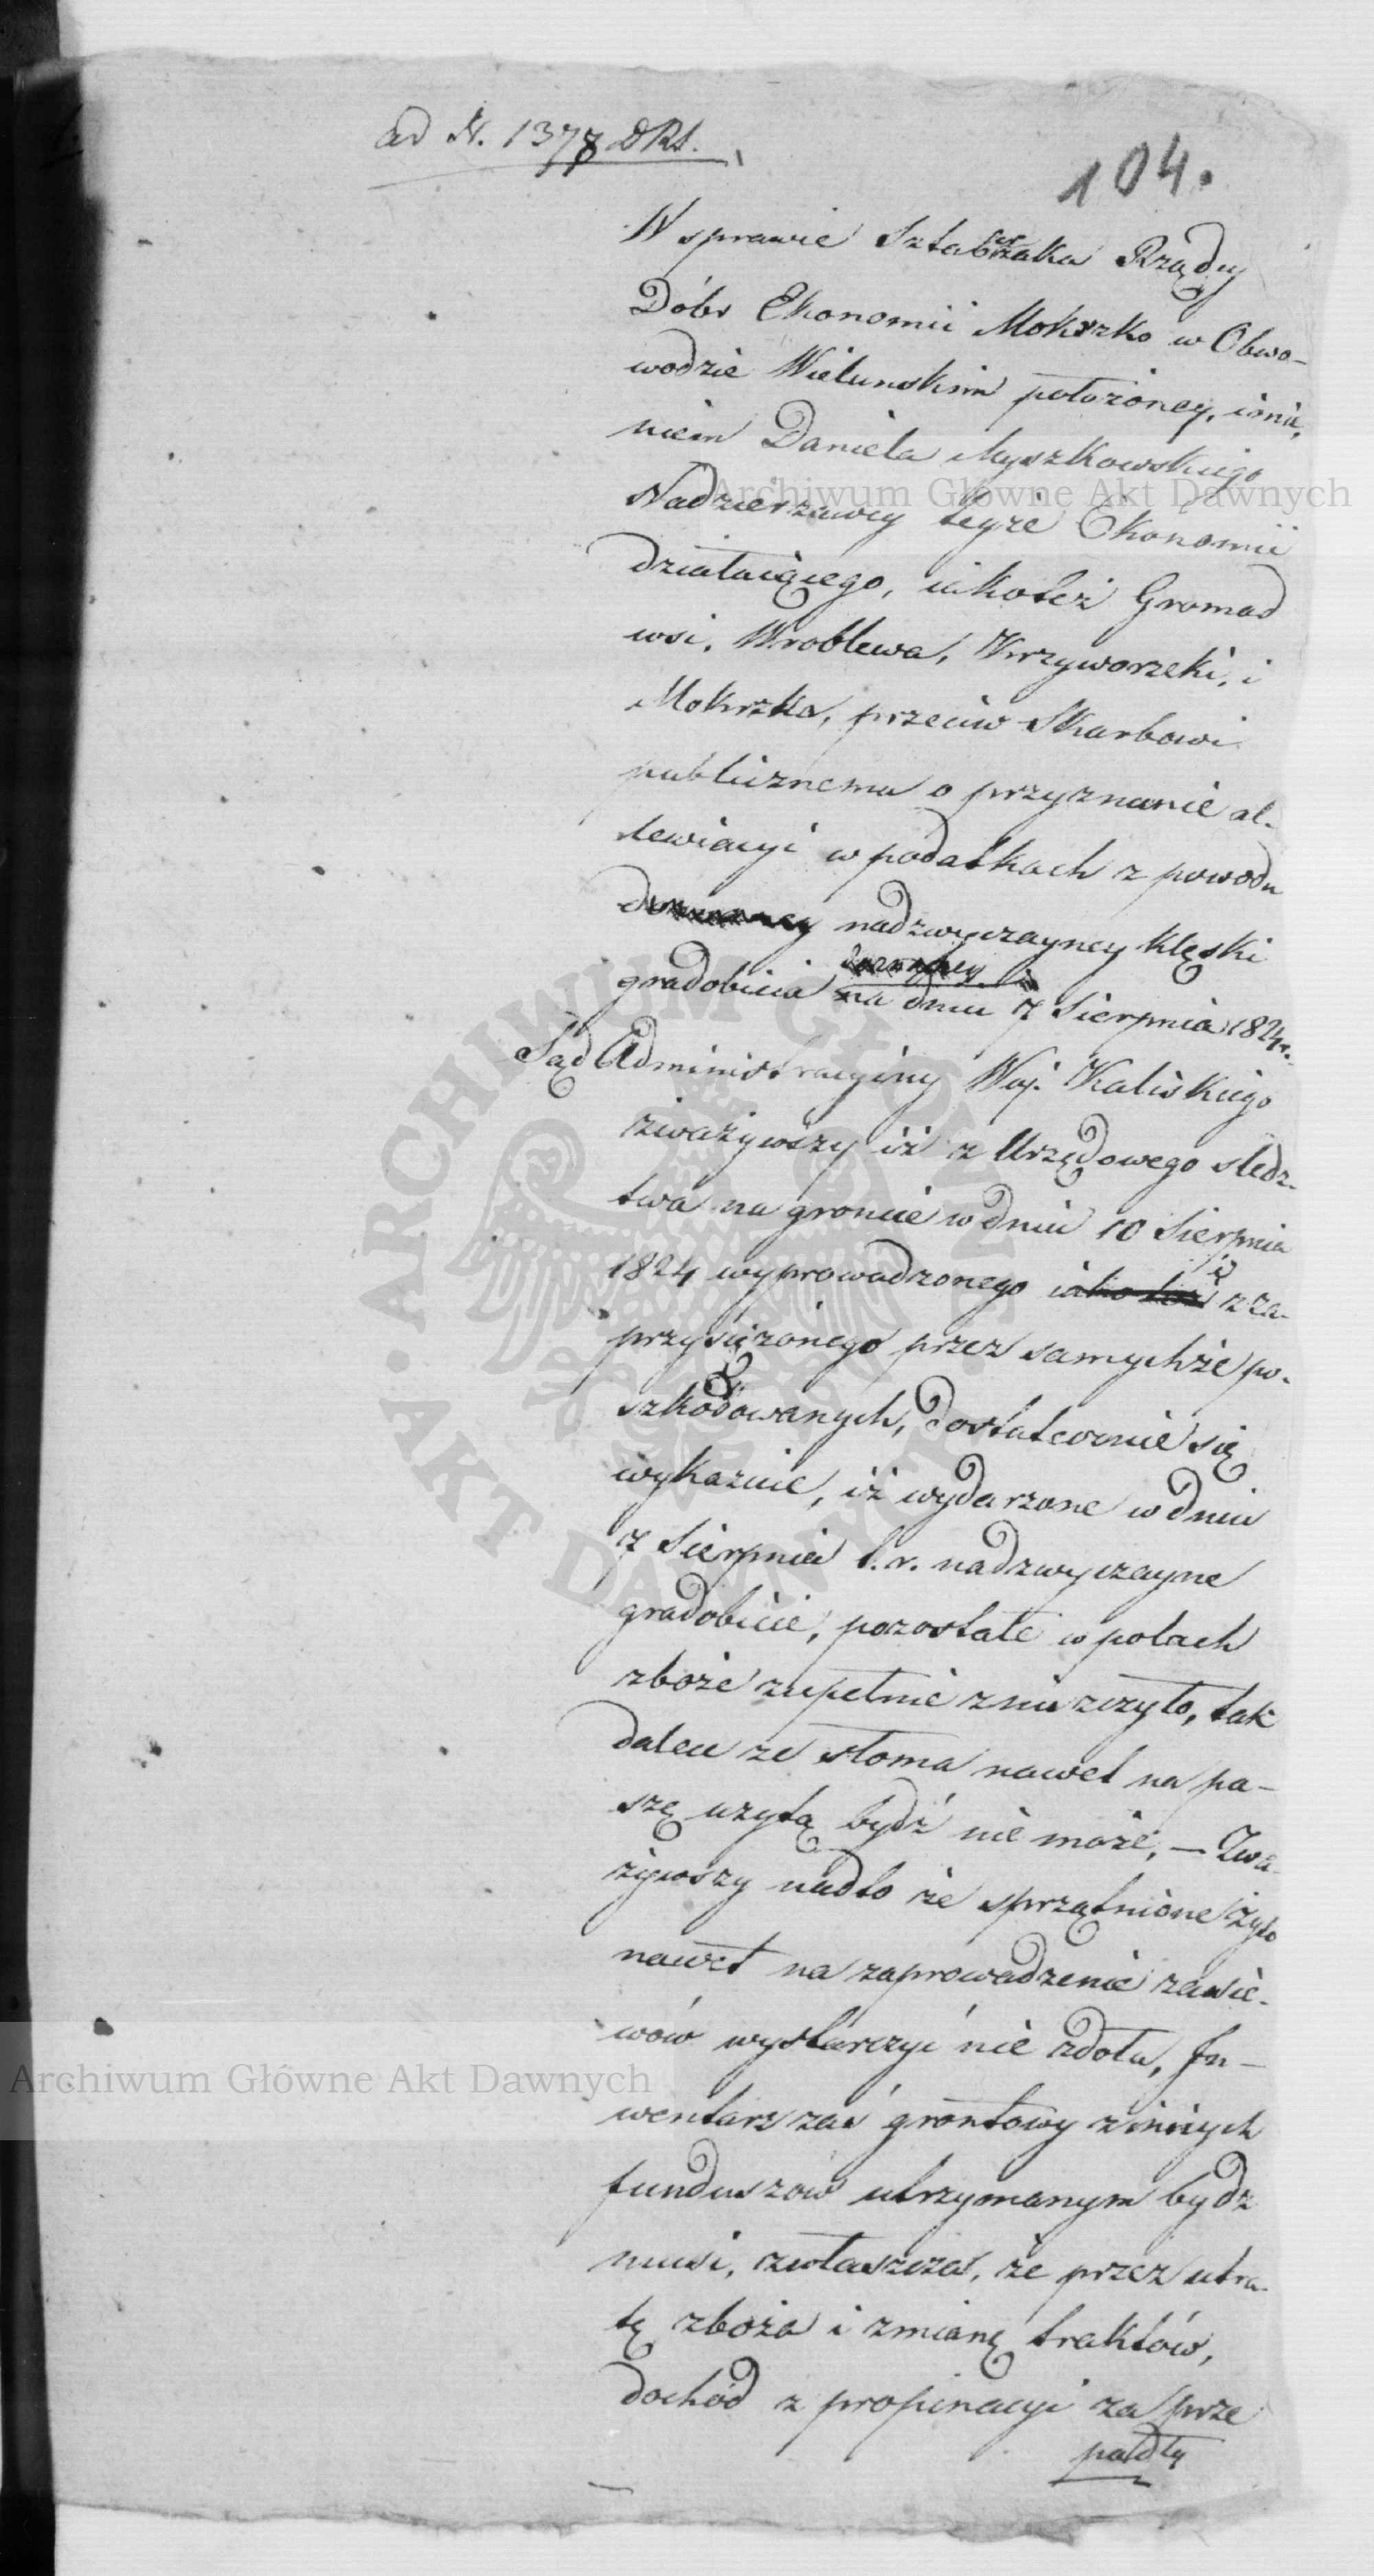 ad N. 1378 DRS.
104.
W sprawie Sztabrzaka Rządzy
Dóbr Ekonomii Mokrzko w Obwo-
wodzie Wielunskim położoney, imie,
niem Daniela Myszkowskiego
Nadzierzawcy teyże Ekonomii
działaiącego, iakoteż Gromad
wsi, Wroblewa, Krzyworzeki, i
Mokrzka, przeciw Skarbowi
publicznemu o przyznanie al-
lewiacyi w podatkach z powodu
nadzwyczayney klęski
gradobicia na dniu 7 Sierpnia 1824 r.
Sąd Administracyiny Woj. Kaliskiego
zważywszy iż z Urzędowego sledz-
twa na groncie w dniu 10 Sierpnia
1824 wyprowadzonego iako też i z za-
przysiężonego przez samychże po-
szkodowanych, dostatecznie się
wykazuie, iż wydarzone w dniu
7 Sierpnia t. r. nadzwyczayne
gradobicie, pozostałe w polach
zboże zupełnie zniszczyło, tak
dalece ze słoma nawet na pa-
szę uzytą bydź nie może, — Zwa-
żywszy nadto że sprzątnione żyto
nawet na zaprowadzenie zasie-
wów wystarczyć nie zdoła, In-
wentarz zaś grontowy z innych
funduszow utrzymanym bydz
musi, zwłaszcza, że przez utra-
tę zboża i zmianę traktów,
dochód z propinacyi za prze
padły
Archiwum Główne Akt Dawnych
Archiwum Główne Akt Dawnych
ARCHIWUM GŁÓWNE
AKT DAWNYCH